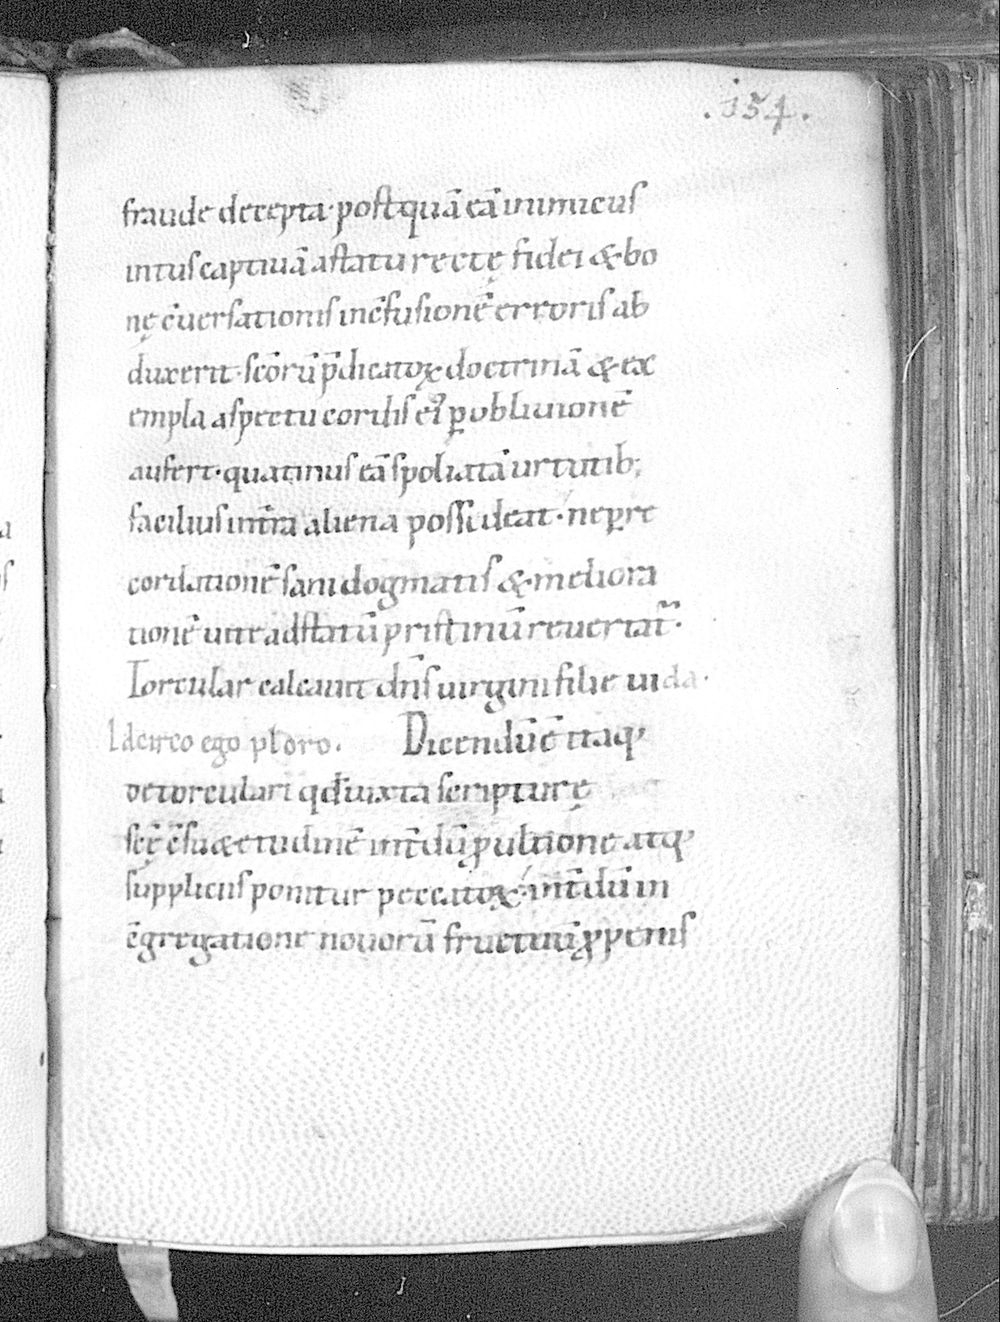 .154.
fraude decepta· postquā eā inimicus
intus captiuā a statu rectę fidei & bo
nę c̄uersationis in c̄fusionē erroris ab
duxerit· sc̄orū p̄dicatoꝝ doctrinā & ex
empla aspectu cordis eiꝰ ꝑ obliuionē
aufert· quatinus eā spoliatā uirtutib;
facilius int̄ra aliena possideat· ne ꝑ re
cordationē sani dogmatis & meliora
tionē uite ad statū pristinū reuertat᷑·
Torcular calcauit dn̄s uirgini filie iuda·
Idcirco ego ploro. Dicendū ē itaq;
de torculari qđ iuxta scripturę
scę c̄suetudinē int̄dū ꝓ ultione atq;
suppliciis ponitur peccatoꝝ· int̄dū in
c̄gregatione nouorū fructuū ꝓ penis